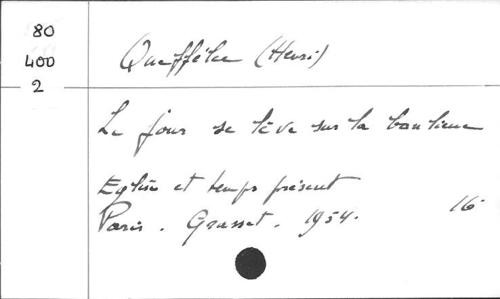 80
400
2
Queffélec (Henri)
Le jour se lève sur la banlieue
Eglise et temps présent
Paris. Grasset. 1954. 16°